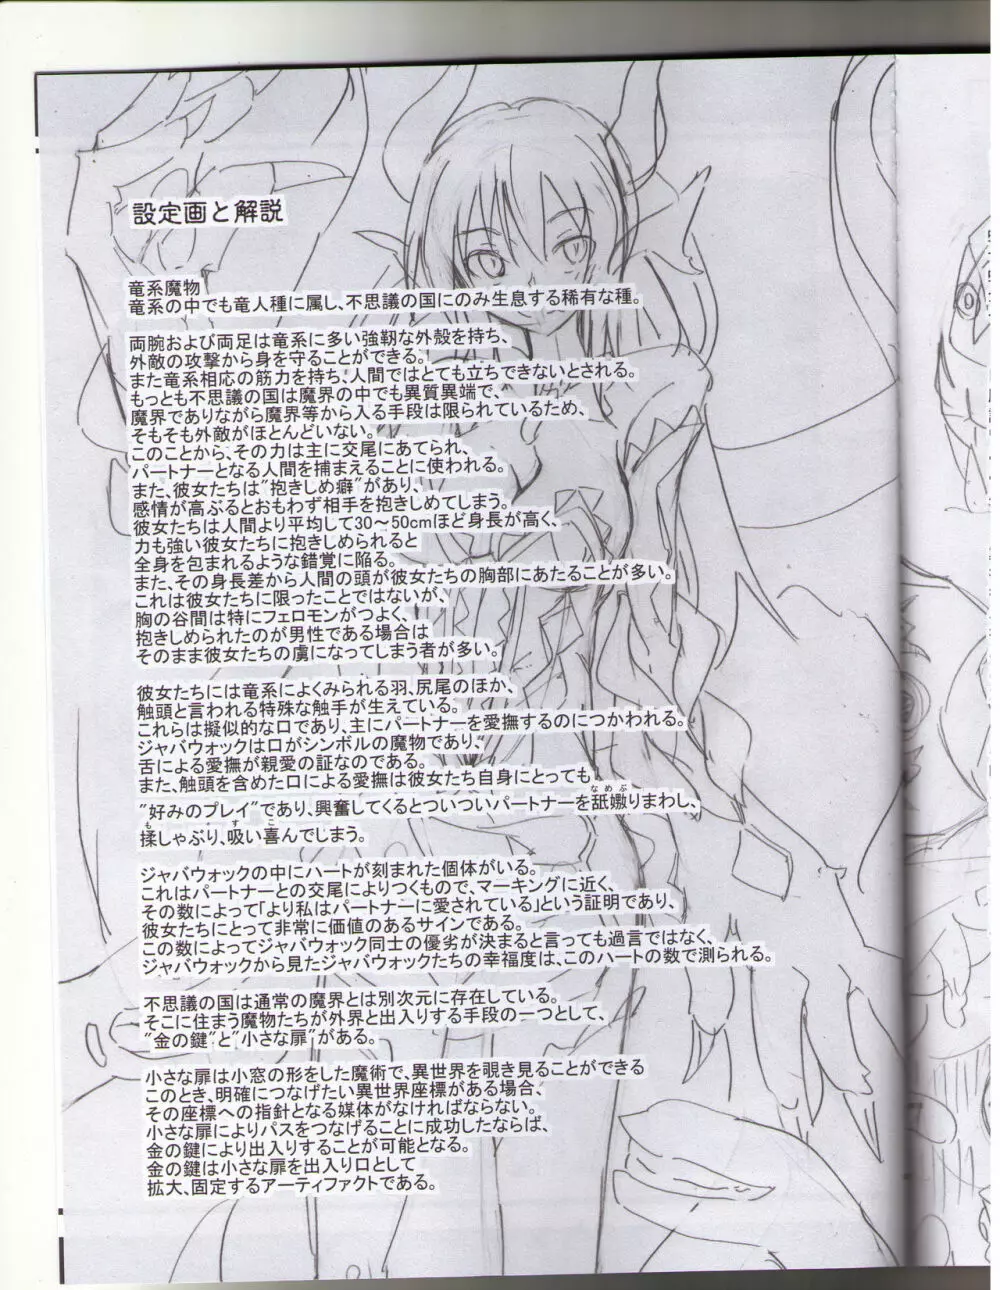 設定画と解説
竜系魔物
竜系の中でも竜人種に属し、不思議の国にのみ生息する稀有な種。
両腕および両足は竜系に多い強靭な外殻を持ち、
外敵の攻撃から身を守ることができる。
また竜系相応の筋力を持ち、人間ではとても立ちできないとされる。
もっとも不思議の国は魔界の中でも異質異端で、
魔界でありながら魔界等から入る手段は限られているため、
そもそも外敵がほとんどいない。
このことから、その力は主に交尾にあてられ、
パートナーとなる人間を捕まえることに使われる。
また、彼女たちは"抱きしめ癖"があり、
感情が高ぶるとおもわず相手を抱きしめてしまう。
彼女たちは人間より平均して30～50cmほど身長が高く、
力も強い彼女たちに抱きしめられると
全身を包まれるような錯覚に陥る。
また、その身長差から人間の頭が彼女たちの胸部にあたることが多い。
これは彼女たちに限ったことではないが、
胸の谷間は特にフェロモンがつよく、
抱きしめられたのが男性である場合は
そのまま彼女たちの虜になってしまう者が多い。
彼女たちには竜系によくみられる羽、尻尾のほか、
触頭と言われる特殊な触手が生えている。
これらは擬似的な口であり、主にパートナーを愛撫するのにつかわれる。
ジャバウォックは口がシンボルの魔物であり、
舌による愛撫が親愛の証なのである。
また、触頭を含めた口による愛撫は彼女たち自身にとっても
"好みのプレイ"であり、興奮してくるとついついパートナーを舐嫐りまわし、
揉しゃぶり、吸い喜んでしまう。
ジャバウォックの中にハートが刻まれた個体がいる。
これはパートナーとの交尾によりつくもので、マーキングに近く、
その数によって「より私はパートナーに愛されている」という証明であり、
彼女たちにとって非常に価値のあるサインである。
この数によってジャバウォック同士の優劣が決まると言っても過言ではなく、
ジャバウォックから見たジャバウォックたちの幸福度は、このハートの数で測られる。
不思議の国は通常の魔界とは別次元に存在している。
そこに住まう魔物たちが外界と出入りする手段の一つとして、
"金の鍵"と"小さな扉"がある。
小さな扉は小窓の形をした魔術で、異世界を覗き見ることができる
このとき、明確につなげたい異世界座標がある場合、
その座標への指針となる媒体がなければならない。
小さな扉によりパスをつなげることに成功したならば、
金の鍵により出入りすることが可能となる。
金の鍵は小さな扉を出入り口として
拡大、固定するアーティファクトである。